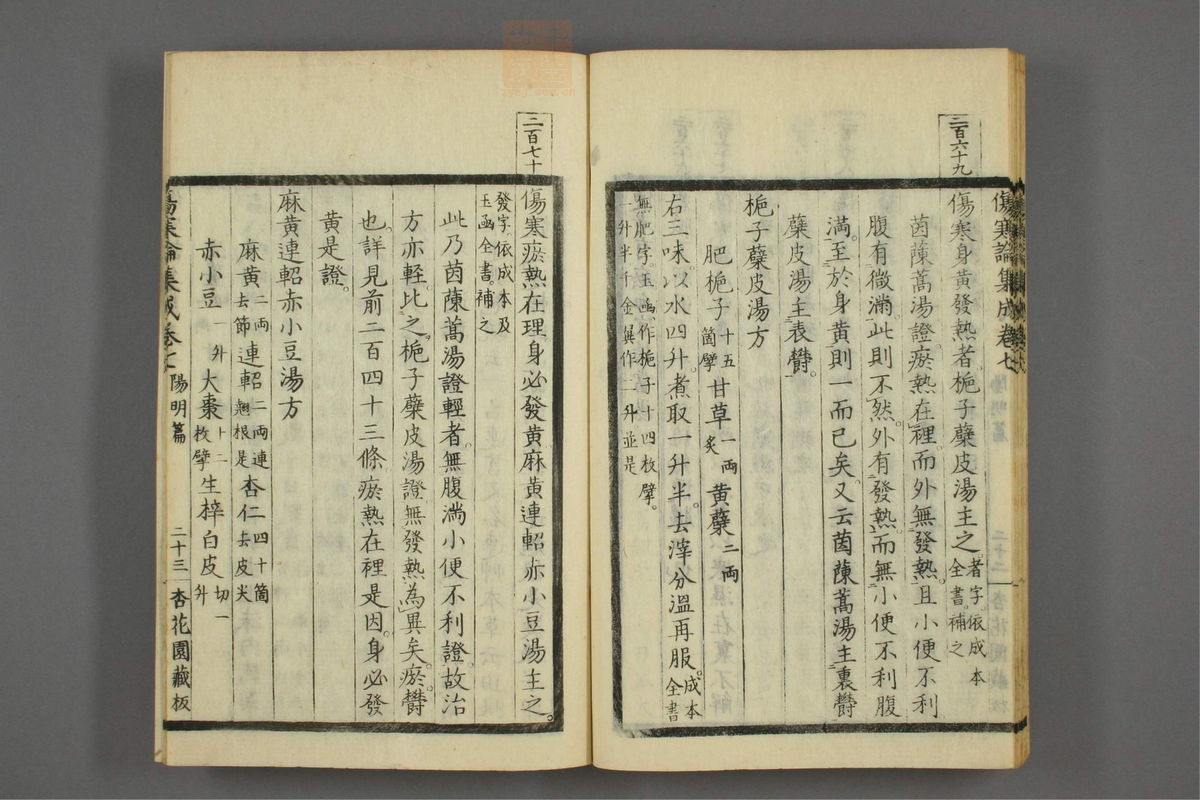 傷寒論集成卷七
二百六十九
傷寒身黃發熱者梔子蘗皮湯主之。者字依成本全書補之
茵蔯蒿湯證瘀熱在裡而外無發熱且小便不利
腹有微滿此則不然外有發熱而無小便不利腹
滿至於身黃則一而已矣又云茵蔯蒿湯主裏欝
蘗皮湯主表欝
梔子蘗皮湯方
肥梔子十五箇擘 甘草一兩炙 黃蘗二兩
右三味以水四升煮取一升半去滓分溫再服。成本全書
無肥字玉函作梔子十四枚擘。一升半千金異作二升並是
二百七十
傷寒瘀熱在理身必發黃麻黃連軺赤小豆湯主之。
發字依成本及玉函全書補之
此乃茵蔯蒿湯證輕者無腹滿小便不利證故治
方亦輕比之梔子蘗皮湯證無發熱為異矣瘀欝
也詳見前二百四十三條瘀熱在裡是因身必發
黃是證。
麻黃連軺赤小豆湯方
麻黃二兩去節 連軺二兩連翹根是 杏仁四十箇去皮尖
赤小豆一升 大棗十二枚擘 生梓白皮切一升
傷寒論集成卷七 陽明篇 二十三 杏花園藏板